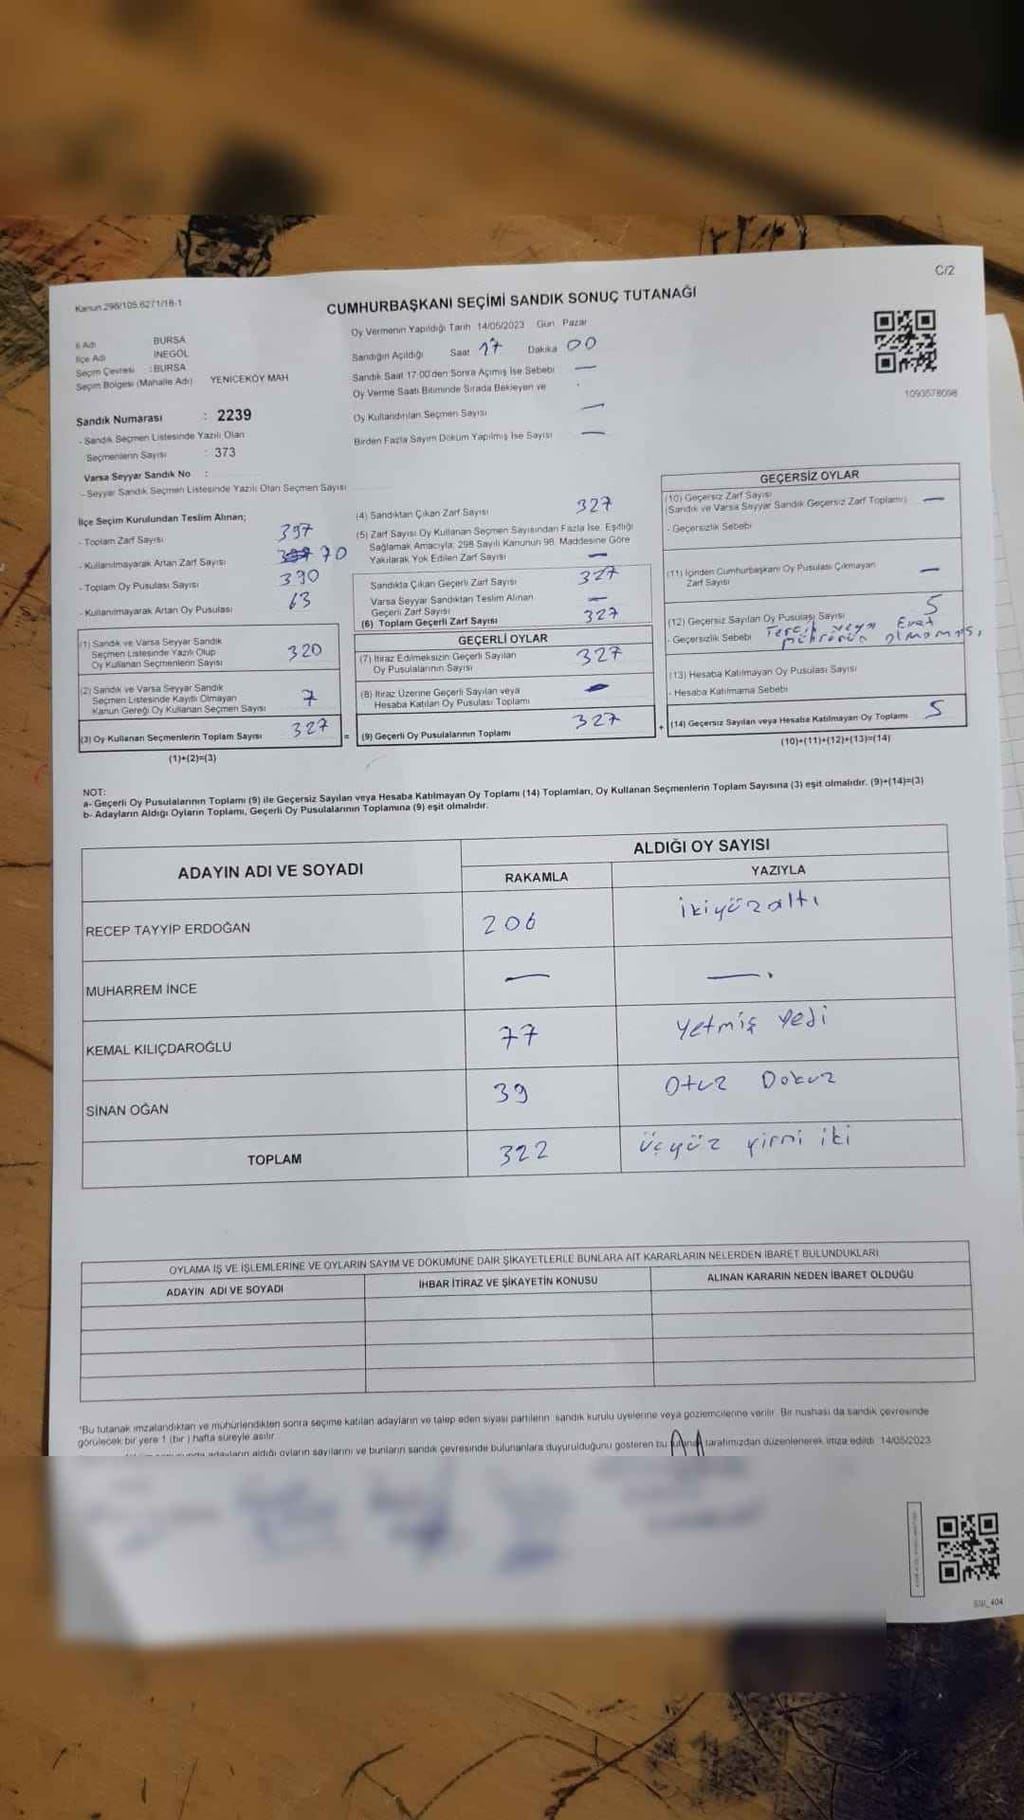 C/2
Kanun 298/105.6271/18-1
CUMHURBAŞKANI SEÇİMİ SANDIK SONUÇ TUTANAĞI
İl Adı BURSA
İlçe Adı İNEGÖL
Seçim Çevresi : BURSA
Seçim Bölgesi (Mahalle Adı) YENİCEKÖY MAH
Sandık Numarası : 2239
- Sandık Seçmen Listesinde Yazılı Olan
Seçmenlerin Sayısı : 373
Varsa Seyyar Sandık No :
- Seyyar Sandık Seçmen Listesinde Yazılı Olan Seçmen Sayısı
Oy Vermenin Yapıldığı Tarih 14/05/2023 Gün Pazar
Sandığın Açıldığı Saat 17 Dakika 00
Sandık Saat 17:00'den Sonra Açımış İse Sebebi —
Oy Verme Saati Bitiminde Sırada Bekleyen ve
Oy Kullandırılan Seçmen Sayısı —
Birden Fazla Sayım Döküm Yapılmış İse Sayısı —
1093578098
İlçe Seçim Kurulundan Teslim Alınan;
- Toplam Zarf Sayısı 397
- Kullanılmayarak Artan Zarf Sayısı 70
- Toplam Oy Pusulası Sayısı 390
- Kullanılmayarak Artan Oy Pusulası 63
(1) Sandık ve Varsa Seyyar Sandık
Seçmen Listesinde Yazılı Olup
Oy Kullanan Seçmenlerin Sayısı 320
(2) Sandık ve Varsa Seyyar Sandık
Seçmen Listesinde Kayıtlı Olmayan
Kanun Gereği Oy Kullanan Seçmen Sayısı 7
(3) Oy Kullanan Seçmenlerin Toplam Sayısı 327
(1)+(2)=(3)
(4) Sandıktan Çıkan Zarf Sayısı 327
(5) Zarf Sayısı Oy Kullanan Seçmen Sayısından Fazla İse, Eşitliği
Sağlamak Amacıyla; 298 Sayılı Kanunun 98. Maddesine Göre
Yakılarak Yok Edilen Zarf Sayısı —
Sandıkta Çıkan Geçerli Zarf Sayısı 327
Varsa Seyyar Sandıktan Teslim Alınan
Geçerli Zarf Sayısı —
(6) Toplam Geçerli Zarf Sayısı 327
GEÇERLİ OYLAR
(7) İtiraz Edilmeksizin Geçerli Sayılan
Oy Pusulalarının Sayısı 327
(8) İtiraz Üzerine Geçerli Sayılan veya
Hesaba Katılan Oy Pusulası Toplamı —
= (9) Geçerli Oy Pusulalarının Toplamı 327
GEÇERSİZ OYLAR
(10) Geçersiz Zarf Sayısı
(Sandık ve Varsa Seyyar Sandık Geçersiz Zarf Toplamı) —
- Geçersizlik Sebebi
(11) İçinden Cumhurbaşkanı Oy Pusulası Çıkmayan
Zarf Sayısı —
(12) Geçersiz Sayılan Oy Pusulası Sayısı 5
- Geçersizlik Sebebi Tercih veya Evet
mührünün olmaması
(13) Hesaba Katılmayan Oy Pusulası Sayısı
- Hesaba Katılmama Sebebi
+ (14) Geçersiz Sayılan veya Hesaba Katılmayan Oy Toplamı 5
(10)+(11)+(12)+(13)=(14)
NOT:
a- Geçerli Oy Pusulalarının Toplamı (9) ile Geçersiz Sayılan veya Hesaba Katılmayan Oy Toplamı (14) Toplamları, Oy Kullanan Seçmenlerin Toplam Sayısına (3) eşit olmalıdır. (9)+(14)=(3)
b- Adayların Aldığı Oyların Toplamı, Geçerli Oy Pusulalarının Toplamına (9) eşit olmalıdır.
ADAYIN ADI VE SOYADI
ALDIĞI OY SAYISI
RAKAMLA YAZIYLA
RECEP TAYYİP ERDOĞAN 206 ikiyüzaltı
MUHARREM İNCE — —
KEMAL KILIÇDAROĞLU 77 Yetmiş Yedi
SİNAN OĞAN 39 Otuz Dokuz
TOPLAM 322 Üçyüz yirmi iki
OYLAMA İŞ VE İŞLEMLERİNE VE OYLARIN SAYIM VE DÖKÜMÜNE DAİR ŞİKAYETLERLE BUNLARA AİT KARARLARIN NELERDEN İBARET BULUNDUKLARI
ADAYIN ADI VE SOYADI İHBAR İTİRAZ VE ŞİKAYETİN KONUSU ALINAN KARARIN NEDEN İBARET OLDUĞU
*Bu tutanak imzalandıktan ve mühürlendikten sonra seçime katılan adayların ve talep eden siyasi partilerin sandık kurulu üyelerine veya gözlemcilerine verilir. Bir nüshası da sandık çevresinde
görülecek bir yere 1 (bir) hafta süreyle asılır.
adayların aldığı oyların sayılarını ve bunların sandık çevresinde bulunanlara duyurulduğunu gösteren bu tutanak tarafımızdan düzenlenerek imza edildi 14/05/2023